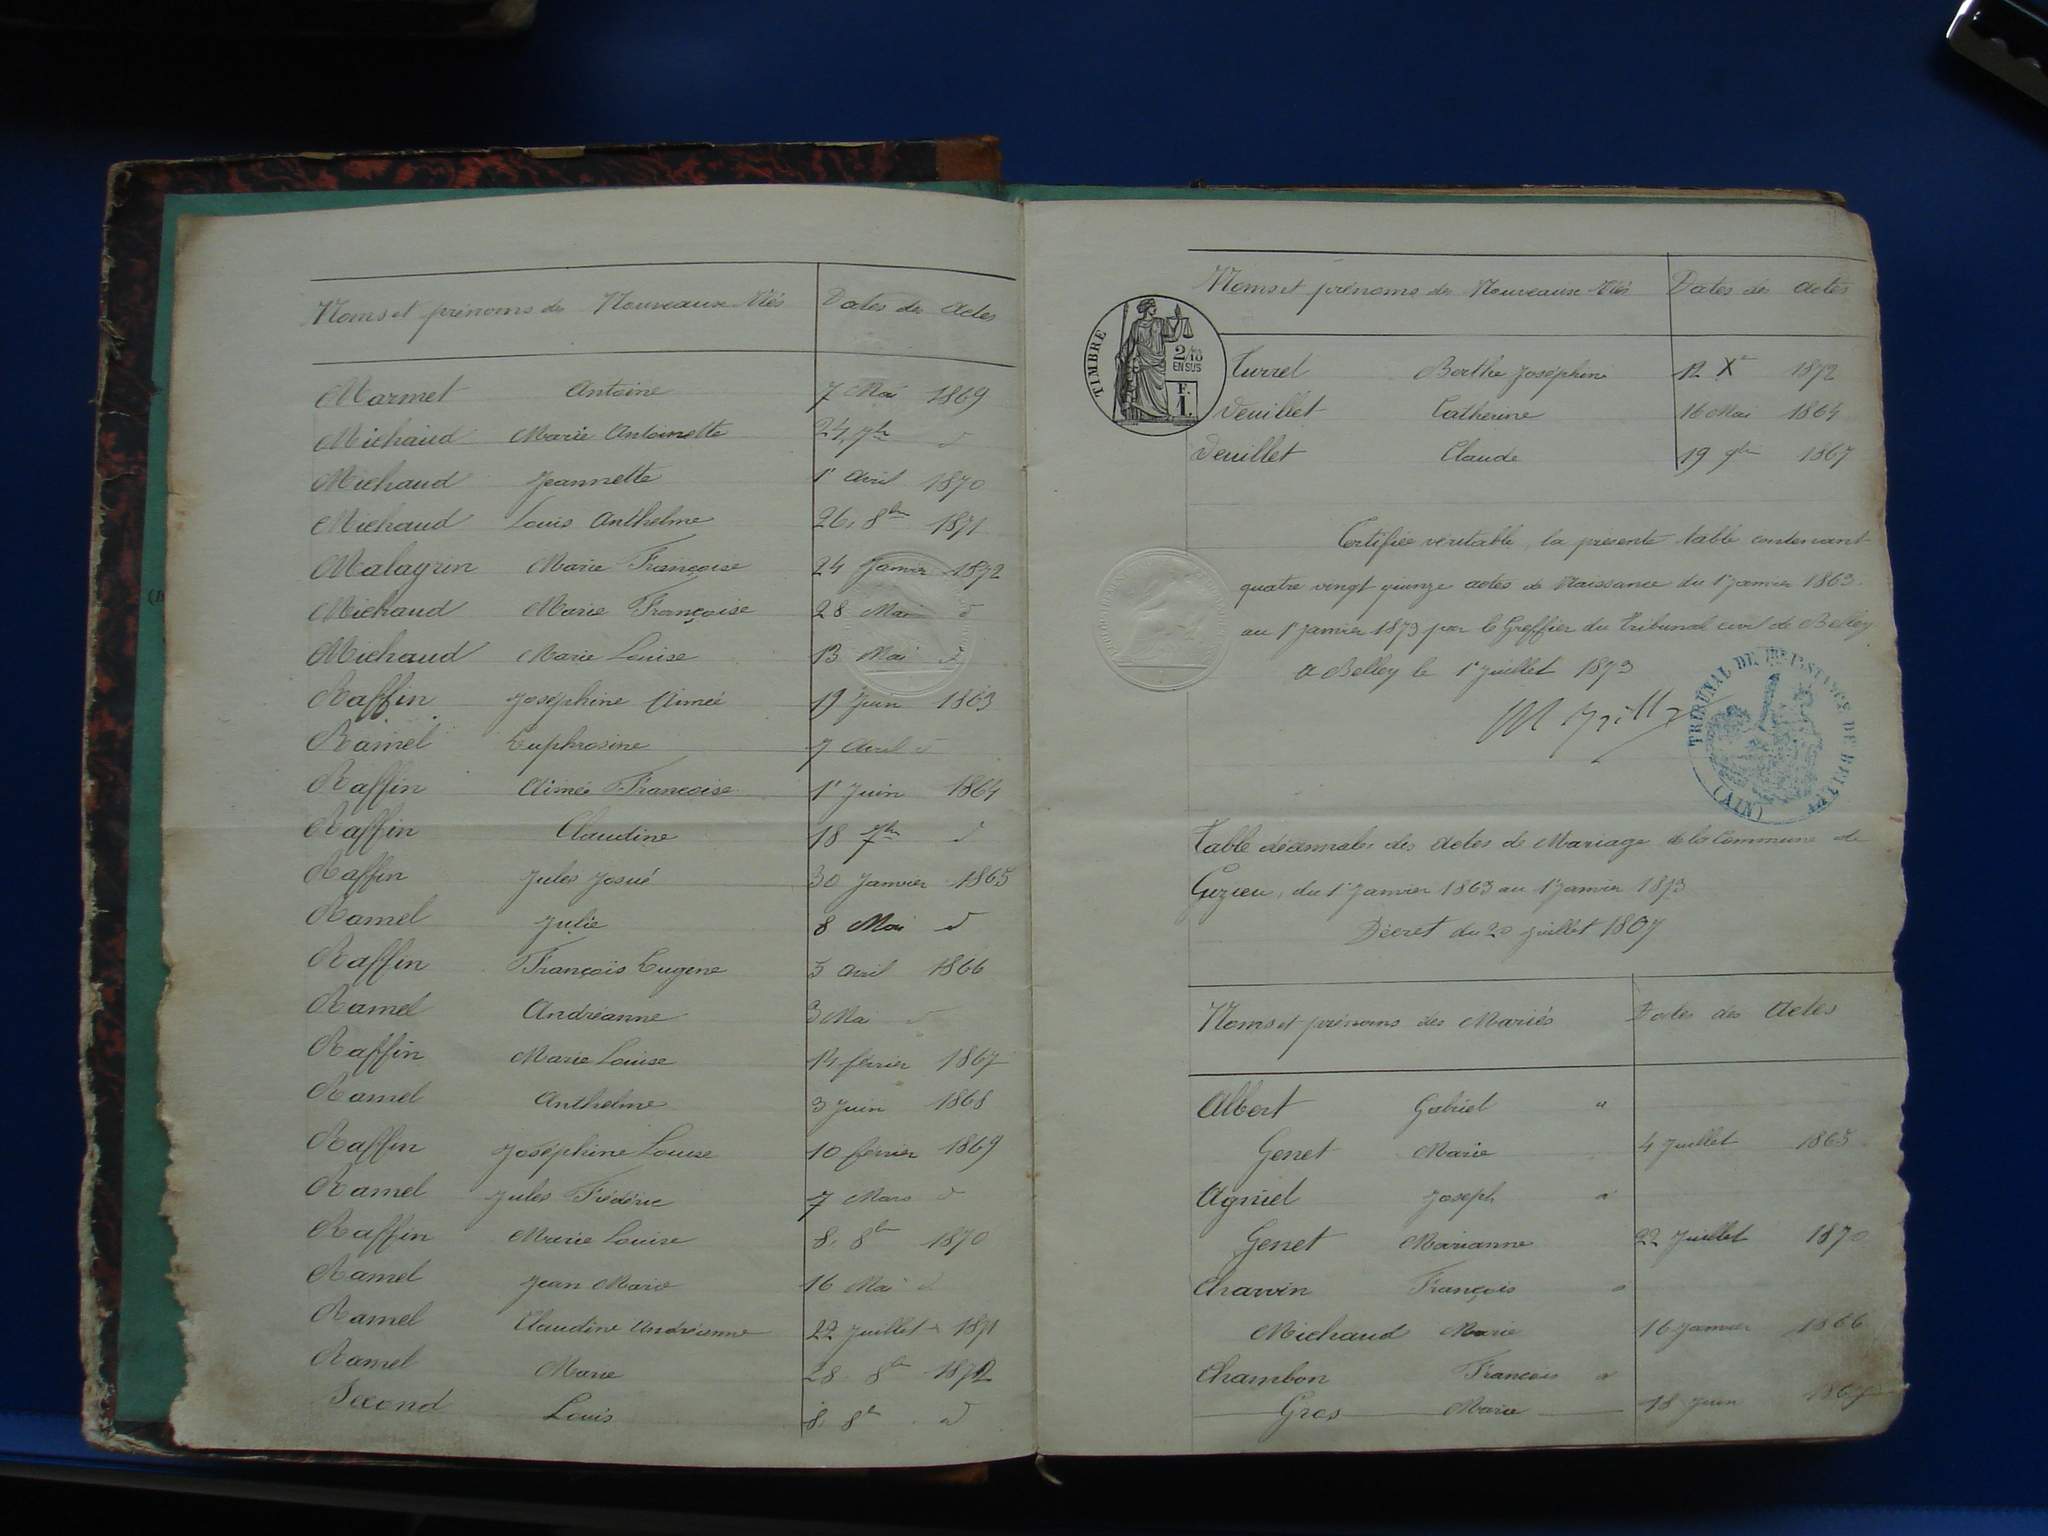 Noms et prénoms des Nouveaux Nés Dates des Actes
Marmet Antoine 7 Mai 1869
Michaud Marie Antoinette 24, 7bre d°
Michaud Jeannette 1er Avril 1870
Michaud Louis Anthelme 26, 8bre 1871
Malagrin Marie Françoise 24 Janvier 1872
Michaud Marie Françoise 28 Mai d°
Michaud Marie Louise 13 Mai d°
Raffin Joséphine Aimée 19 Juin 1863
Ramel Euphrosine 7 Avril d°
Raffin Aimée Françoise 1er Juin 1864
Raffin Claudine 18 7bre d°
Raffin Jules Josué 30 Janvier 1865
Ramel Julie 8 Mai d°
Raffin François Eugene 5 Avril 1866
Ramel Andréanne 3 Mai d°
Raffin Marie Louise 14 février 1867
Ramel Anthelme 3 Juin 1868
Raffin Joséphine Louise 10 février 1869
Ramel Jules Frédéric 7 Mars d°
Raffin Marie Louise 8, 8bre 1870
Ramel Jean Marie 16 Mai d°
Ramel Claudine Andréanne 22 Juillet 1871
Ramel Marie 28 8bre 1872
Second Louis 8 8bre d°
Noms et prénoms des Nouveaux Nés Dates des Actes
TIMBRE
2/10
EN SUS
F.
1.
Turrel Berthe Joséphine 12 Xre 1872
Veuillet Catherine 16 Mai 1864
Veuillet Claude 19 9bre 1867
Certifiée véritable, la présente table contenant
quatre vingt quinze actes de Naissance du 1er Janvier 1863
au 1er Janvier 1873 par le Greffier du Tribunal civil de Belley
A Belley le 1er Juillet 1873
TRIBUNAL DE 1RE INSTANCE DE BELLEY
(AIN)
Table décennale des Actes de Mariage de la Commune de
Gizieu, du 1er Janvier 1863 au 1er Janvier 1873
Décret du 20 juillet 1807
Noms et prénoms des Mariés Dates des Actes
Albert Gabriel
Genet Marie 4 Juillet 1865
Agniel Joseph
Genet Marianne 22 Juillet 1870
Charvin François
Michaud Marie 16 Janvier 1866
Chambon François
Gros Marie 18 Juin